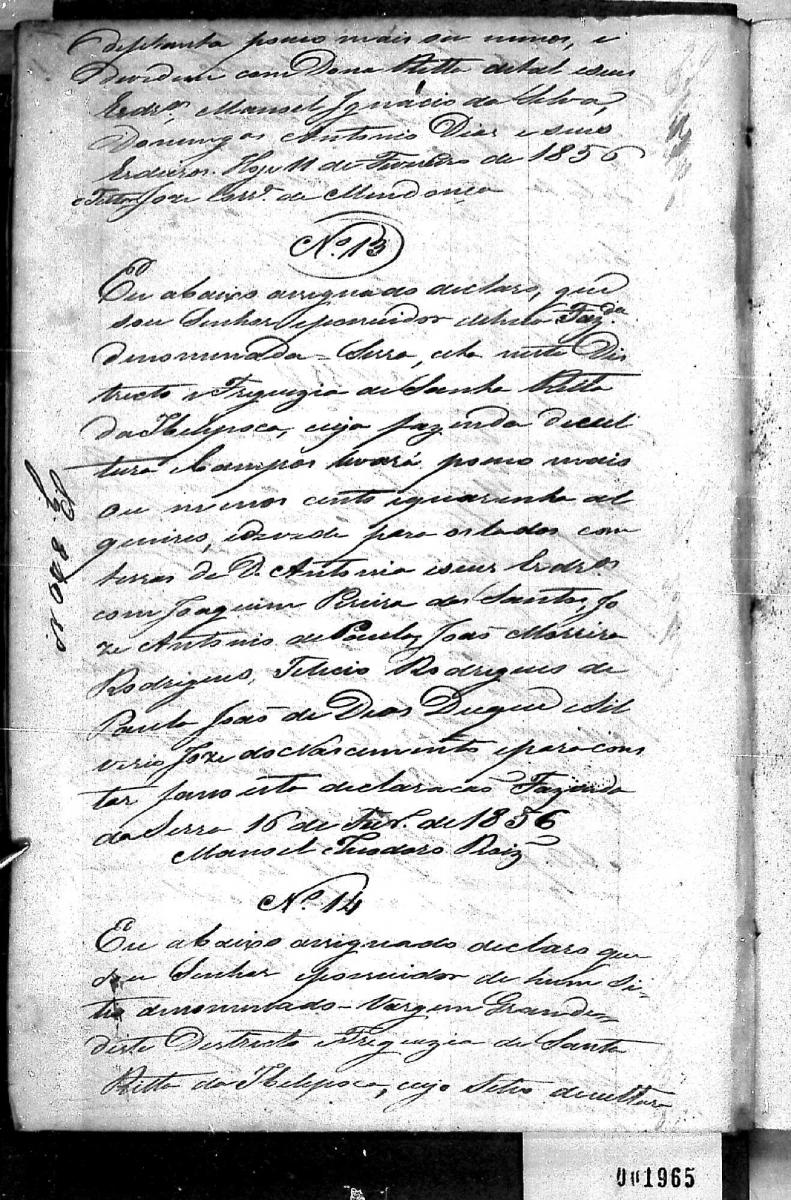 septanta pouco mais ou menos, e
devidem com Dona Ritta de tal e seus
Erdros, Manoel Ignacio da Silva,
Domingos Antonio Dias e seus
Erdeiros. Hoje 11 de Fevereiro de 1856
Joze Corra. de Mendonça
No. 13
Eu abaixo assignado declaro, que
sou Senhor e possuidor de huma Fazda
denominada = Serra, cita neste Dis
tricto e Freguezia de Santa Ritta
da Ibitipoca, cuja fazenda de cul
tura e Campos levará pouco mais
ou menos cento e quarenta al
queires, e devide para os lados com
terras de D. Antonia e seus Erdros
com Joaquim Pereira dos Santos, Jo
ze Antonio de Paula, João Moreira
Rodrigues, Felicio Rodrigues de
Paula João de Deos Duque e Sil
verio Joze do Nascimento e para cons
tar faço esta declaracaõ Fazenda
da Serra 16 de Fevro. de 1856
Manoel Teodoro Roiz
No. 14
Eu abaixo assignado declaro que
sou Senhor e possuidor de hum Si-
tio denominado - Vargem Grande,
deste Destricto e Freguezia de Santa
Ritta da Ibitipoca, cujo Sitio de cultura
001965